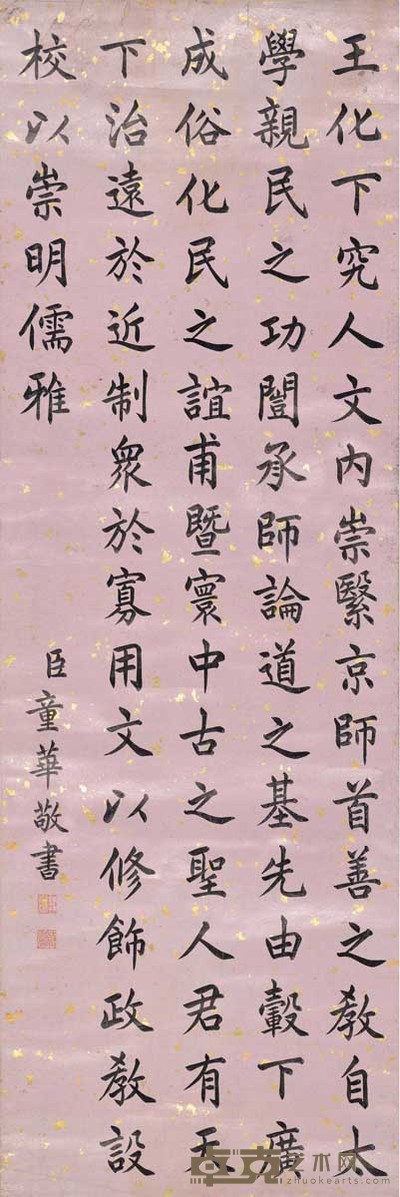 王化下究人文内崇緊京師首善之教自太
學親民之功闓承師論道之基先由轂下廣
成俗化民之誼甫暨寰中古之聖人君有天
下治遠於近制衆於寡用文以修飾政教設
校以崇明儒雅
臣童華敬書
卓克艺术网
www.zhuokearts.com